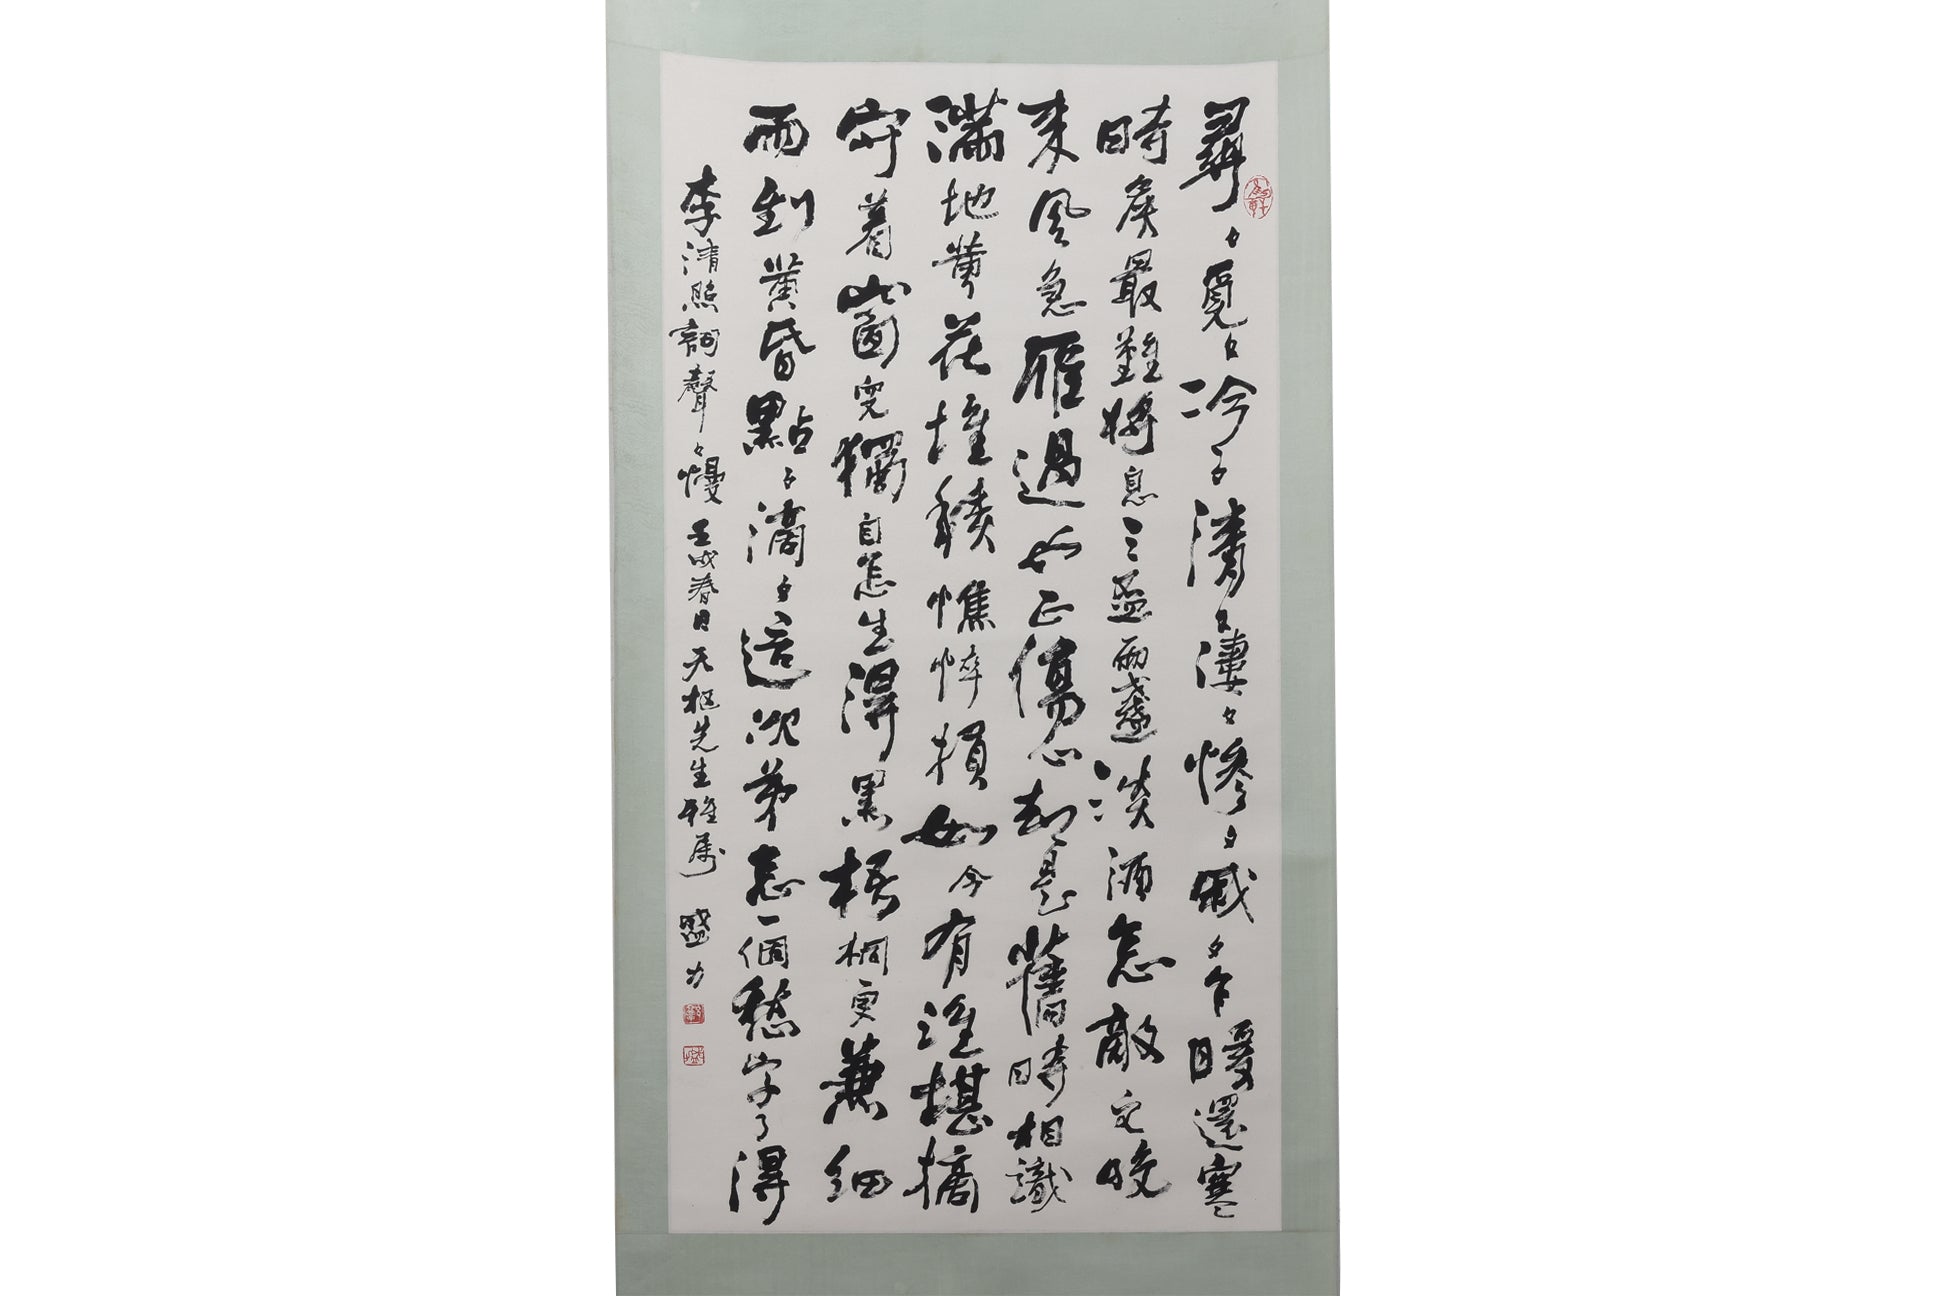 尋々覓々冷々清々淒々慘々戚々乍暖還寒
時候最難將息三盃兩盞淡酒怎敵它晚
來風急雁過也正傷心却是舊時相識
滿地黃花堆積憔悴損如今有誰堪摘
守着窗兒獨自怎生得黑梧桐更兼細
雨到黃昏點々滴々這次第怎一個愁字了得
李清照詞聲々慢壬戌春日天樞先生雅屬 盛力